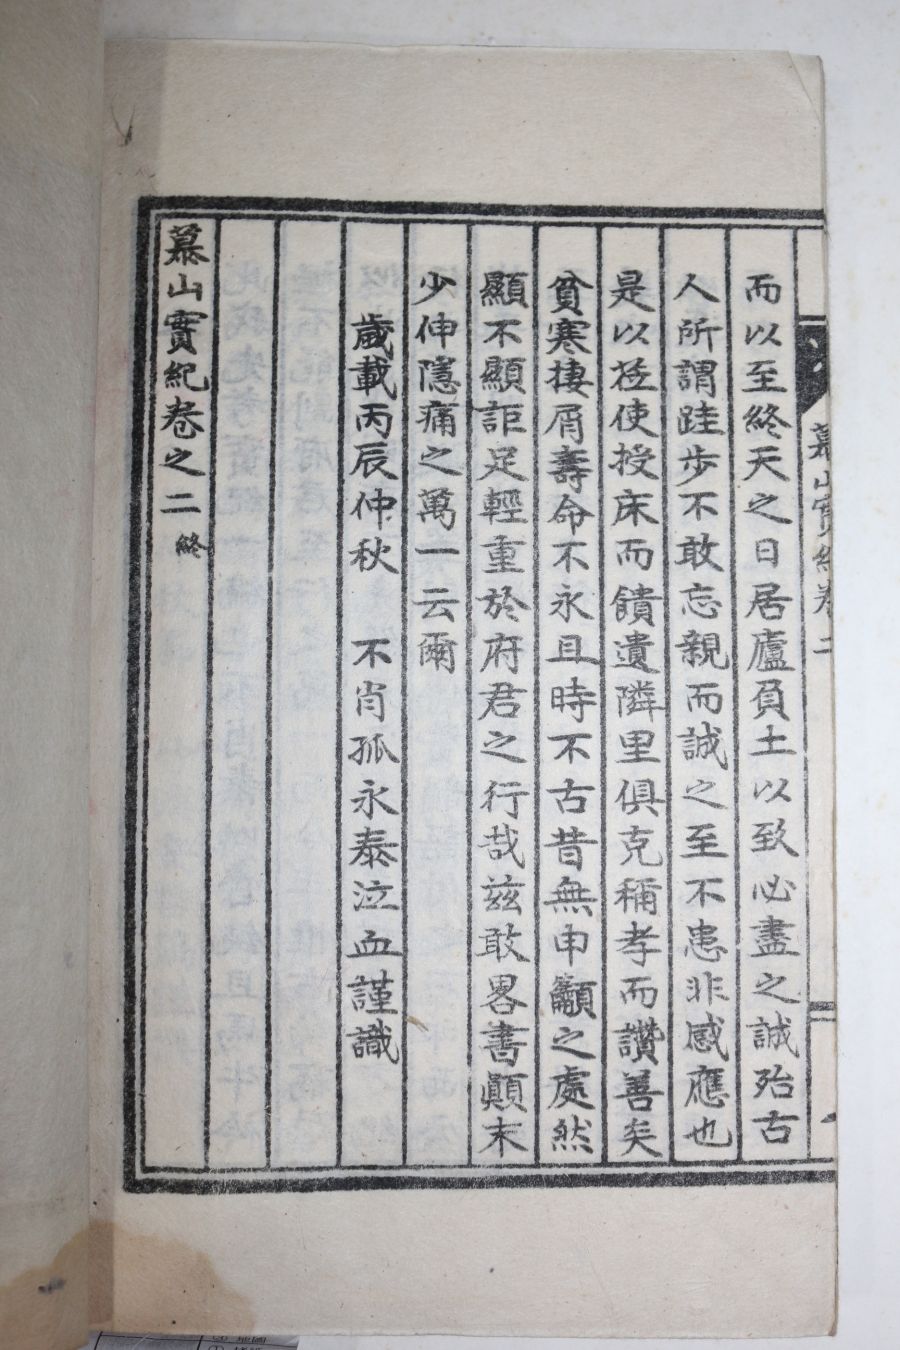 慕山實紀卷之二
而以至終天之日居廬負土以致必盡之誠殆古
人所謂跬步不敢忘親而誠之至不患非感應也
是以莛使授床而饋遺隣里俱克稱孝而讚善矣
貧寒捿屑壽命不永且時不古昔無申籲之處然
顯不顯詎足輕重於府君之行哉兹敢畧書顚末
少伸隱痛之萬一云爾
歲載丙辰仲秋 不肖孤永泰泣血謹識
慕山實紀卷之二 終